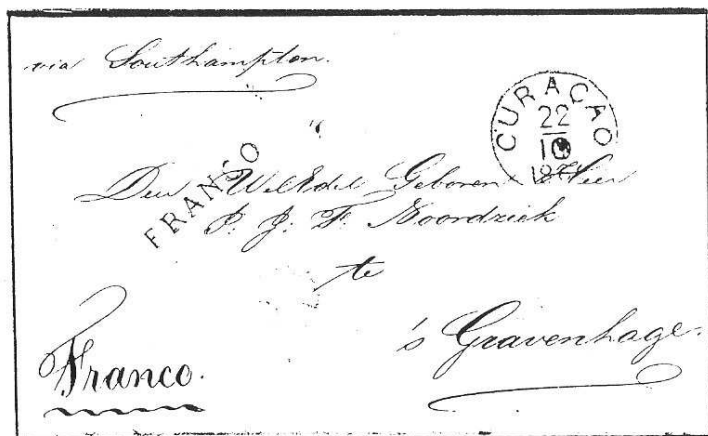 via Southampton.
CURAÇAO
22
10
FRANCO
Den WelEdel Geboren Heer
P. J. F. Noordziek
te
's Gravenhage.
Franco.